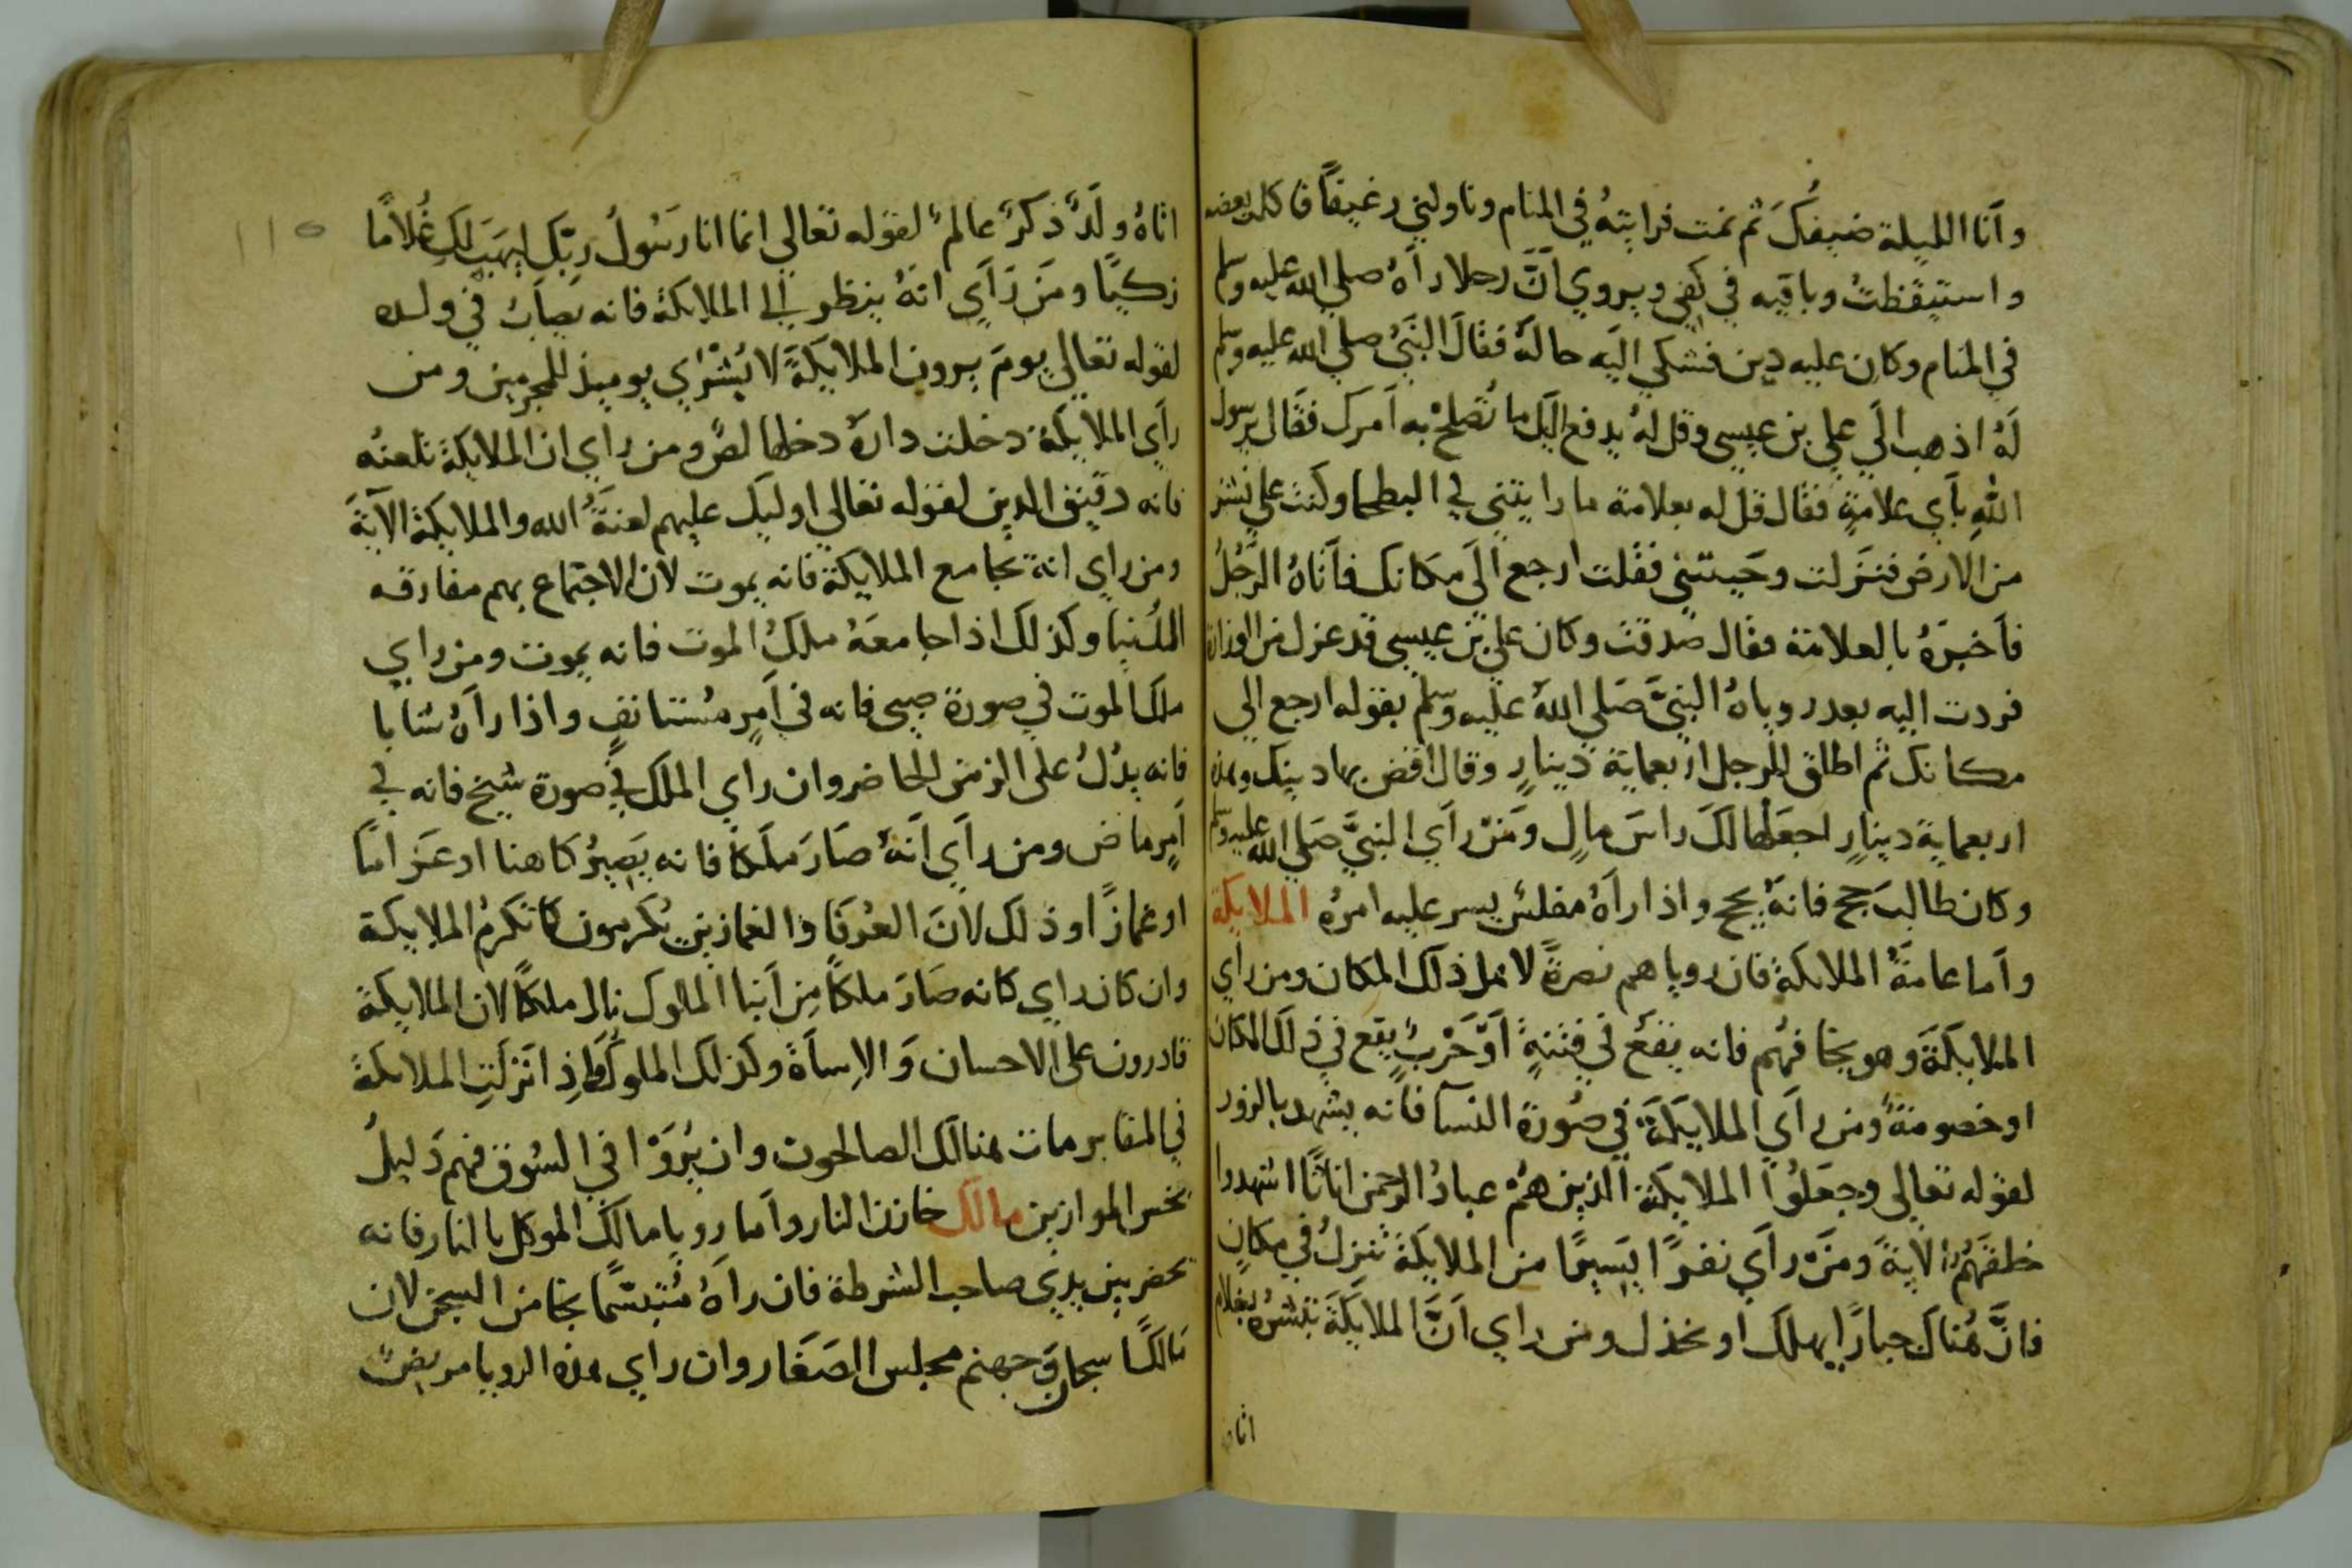 وأنا الليلة ضيفُكَ ثم نمت فرايتهُ في المنام وناولني رغيفًا فاكلت بعضه
واستيقظتُ وباقيه في كفي ويروي أنَّ رجلا رآهُ صلي الله عليه وسلم
في المنام وكان عليه دين فشكي اليَه حالَهُ فقالَ النَبيُ صلي الله عليه وسلم
لَهُ اذهب الَي علي بن عيسى وقل لهُ يدفع اليَك ما تُصلحُ به اَمرك فقال يرسول
اللهِ بأَي علامةٍ فقال قل له بعلامة ما رايتني في البطحا وكنت علي نشز
من الارض فنزلت وجَيتني فقلت ارجع الَي مكانك فأتاهُ الرَّجُلُ
فأخبرَهُ بالعلامة فقال صدقت وكان علي بن عيسي قد عزل من الوزارة
فردت اليه بعد روياهُ النبيَّ صَلي اللهُ عليه وسلم بقوله ارجع الي
مكانك ثم اطلق للرجل اربعماية دينارٍ وقال اقض بها دينك وهذه
اربعماية دينارٍ اجعَلها لَكَ راسَ مالٍ ومَنْ رأَي النبيَّ صَلي الله عليه وسلم
وكان طالبَ حج فانهُ يحج واذا رآهُ مفلسٌ يسر عليه امرُه الملايكة
وأما عامةُ الملايكةِ فان روياهم نصرةً لاهل ذلك المكان ومن رأي
الملايكَةَ وهو يخافهُم فانه يقع في فتنةٍ اَوْ حَرْبٍ يقع في ذلكَ المكان
او خصومةً ومن رأي الملايكَةَ في صُورة النسآ فانه يشهد بالزور
لقوله تعالي وجعَلُوا الملايكَةَ الذين هُمْ عبادُ الرحمن اناثًا اشهدوا
خلقَهُم الاية ومَنْ رأَي نفرًا يَسِيرًا من الملايكَةِ تنزلُ في مكانٍ
فانَّ هُناك جبارًا يهلك او يخذل ومن راي أَنَّ الملايكَةَ تبشرُه بغلام
اتاه
١١٥
اتاهُ ولَدٌ ذكرٌ عالمٌ لقوله تعالي انما انا رَسُولُ ربّكِ ليهَبَ لَكِ غُلامًا
زكيًا ومَن رَأَي انهُ ينظر الي الملايكَة فانه يصابُ في ولده
لقوله تعالي يومَ يرون الملايكَةَ لا بُشْرَي يوميذ للمجرمين ومن
رأي الملايكَة دخلت دارَهُ دخلها لصٌ ومن راي ان الملايكة تلعنُه
فانه دقيق الدين لقوله تعالي اوليك عليهم لعنةُ الله والملايكة الآيةَ
ومن راي انه يجامع الملايكة فانه يموت لان الاجتماع بهم مفارقه
الدُنيا وكذلك اذا جامعَهُ ملَكُ الموت فانه يموت ومن راي
ملَك الموت في صورة صبي فانه في اَمرٍ مُستانفٍ واذا راَهُ شابا
فانه يدُلُ على الزمن الحاضر وان راي الملك في صورة شيخ فانه في
أمرٍ ماض ومن رأَي أنهُ صَارَ ملَكاً فانه يَصِيرُ كاهنا او عَرافًا
او غمازًا وذلك لانَ العُرَفا والغمازين يُكرمون كما تكرمُ الملايكة
وان كان راي كانه صَارَ ملكًا من اَبنا الملوك نال ملكًا لان الملايكة
قادرون على الاحسان وَالاِساَة وكذلك الملوكُ واذِا نَزلَتِ الملايكةُ
في المقابر مات هنالك الصالحون وان يُرَوْا في السُوق فهم دَليلُ
بخس الموازين مالك خازن النار وأما رويا مالك الموكل بالنار فانه
يحضر بين يدي صاحب الشرطة فان راَهُ مُتبسّمًا نجا من السجن لان
مالكًا سجان وجهنم مجلس الصغار وان راي هذه الرويا مريضٌ